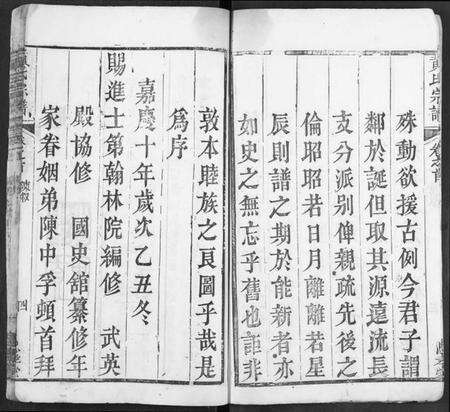 殊動欲援古例今君子謂
鄰於誕但取其源遠流長
支分派别俾親疏先後之
倫昭昭若日月離離若星
辰則譜之期於能新者亦
如史之無忘乎舊也詎非
敦本睦族之良圖乎哉是
為序
嘉慶十年歲次乙丑冬
賜進士第翰林院編修 武英
殿協修 國史館纂修年
家眷姻弟陳中孚頓首拜
黃氏宗譜 卷之首
陳叙
四